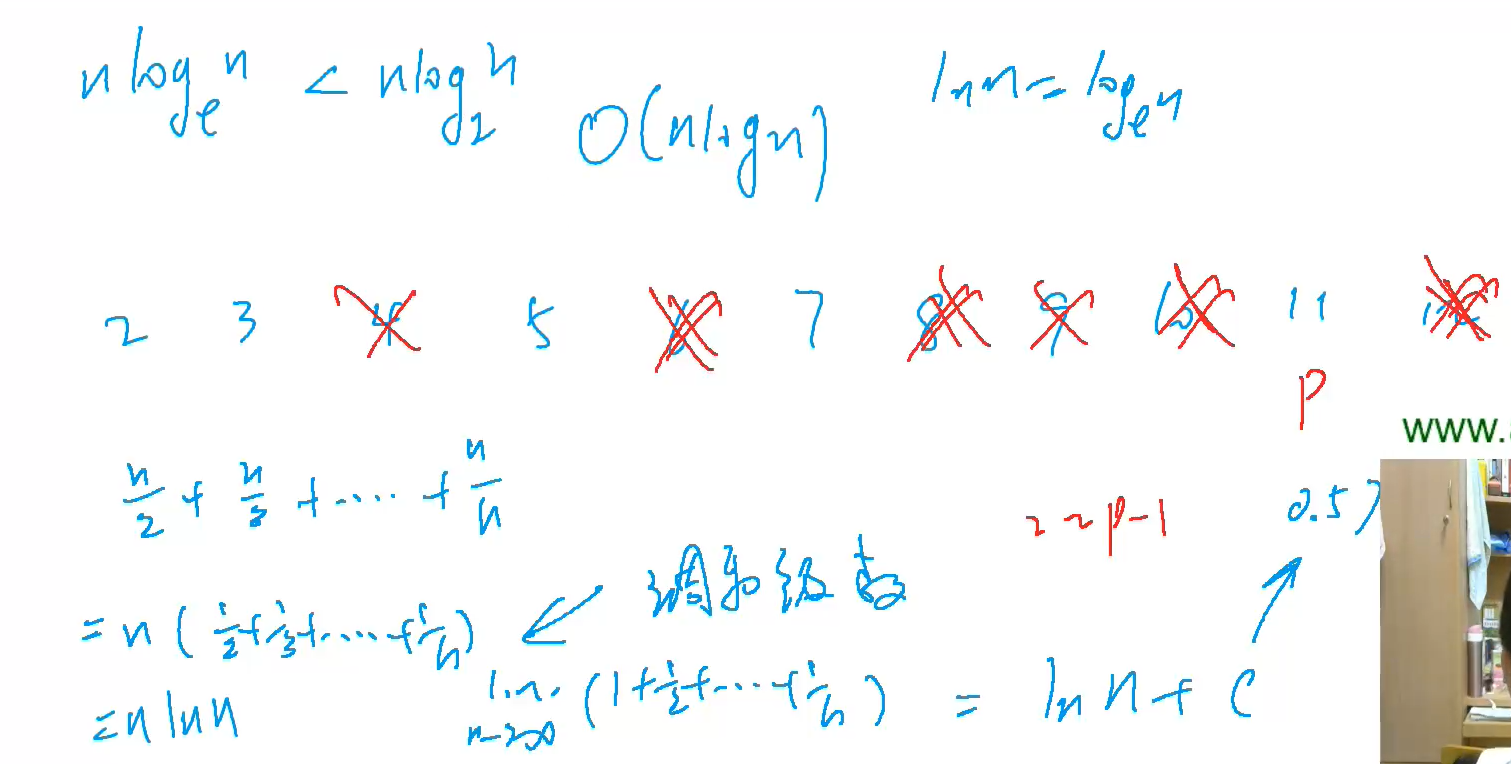 n log_e n < n log_2 n
O(nlogn)
ln n = log_e n
2 3 4 5 6 7 8 9 10 11 12
p
www.
n/2 + n/3 + ····· + n/n
2 ~ p-1
0.57
调和级数
= n ( 1/2 + 1/3 + ····· + 1/n )
= n ln n
lim n→∞ ( 1 + 1/2 + ··· + 1/n ) = ln n + C